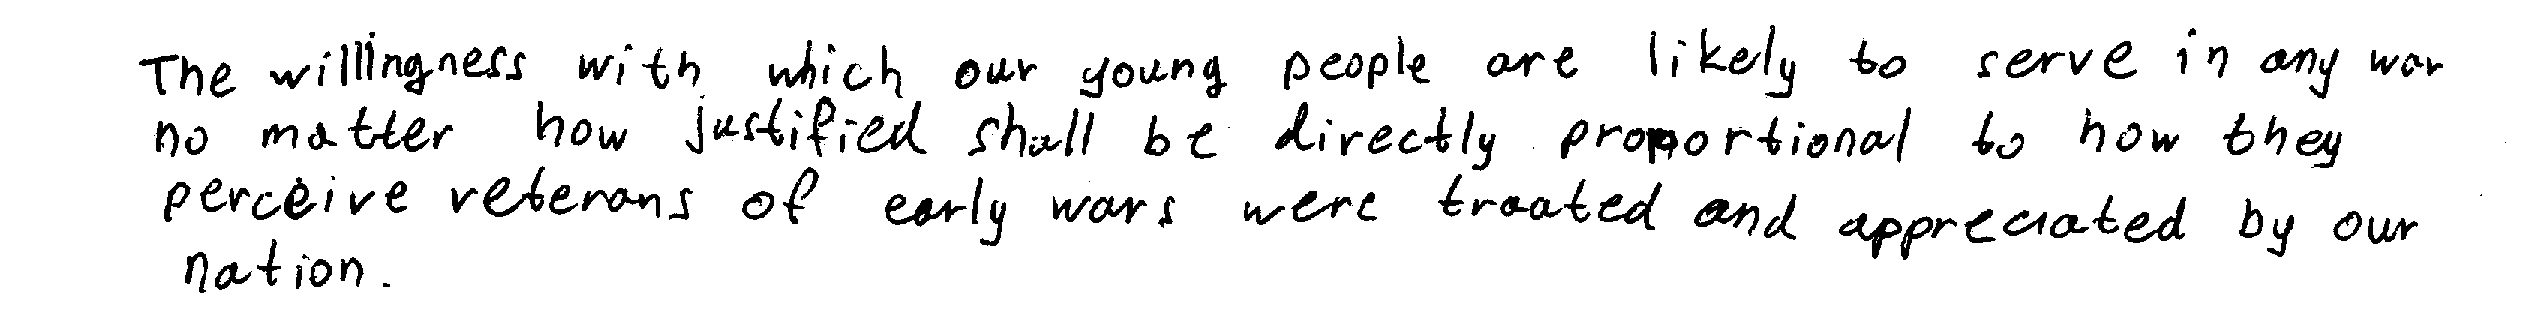 The willingness with which our young people are likely to serve in any war
no matter how justified shall be directly proportional to how they
perceive veterans of early wars were traated and appreciated by our
nation.